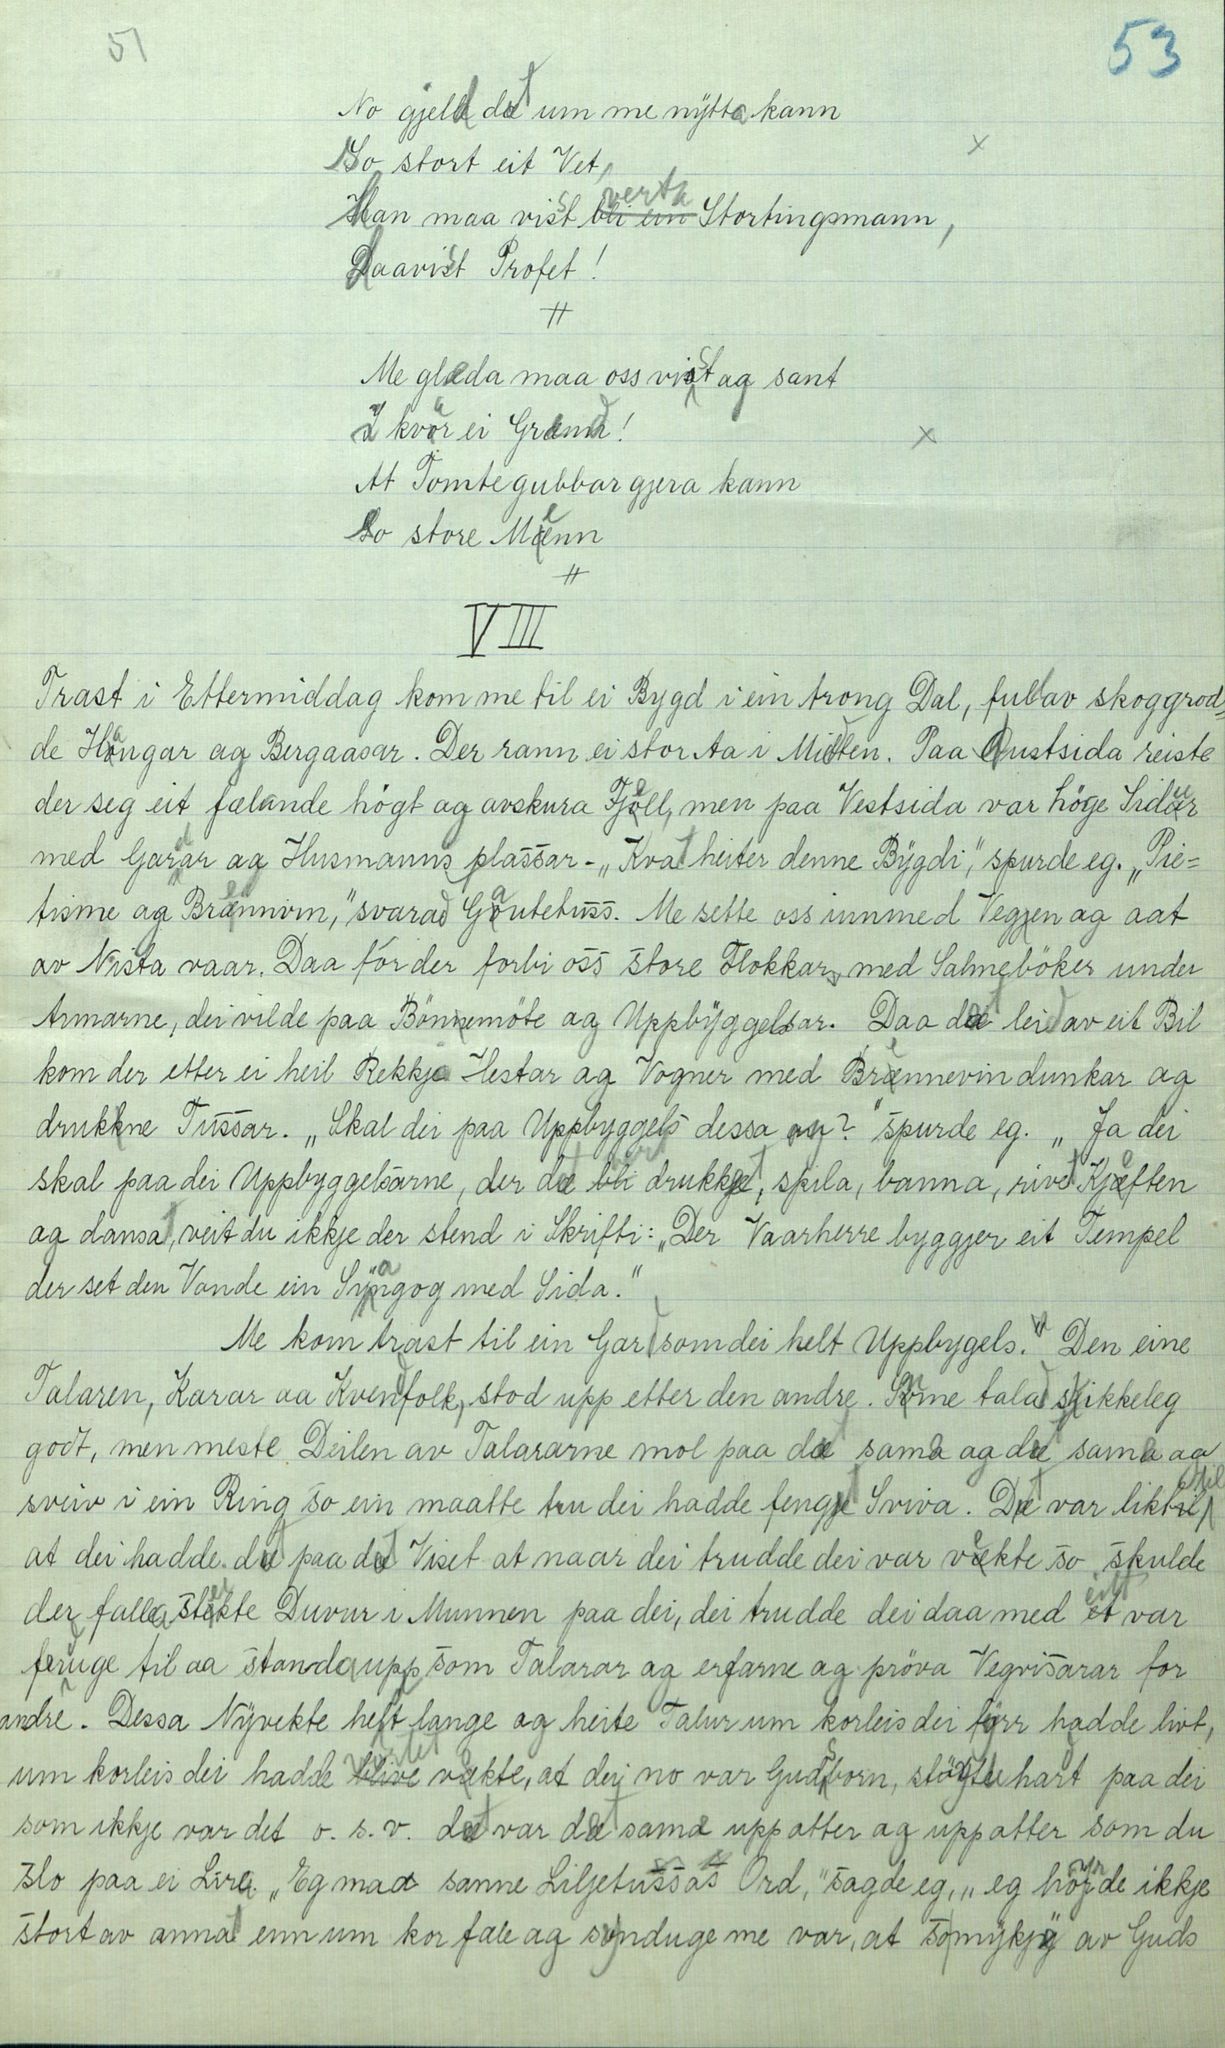 51
53
No gjeld det um me nytta kann
So stort eit Vet,
Han maa visst verta Stortingsmann,
Daavisst Profet!
#
Me gleda maa oss visst ag sant
I kvar ei Grend!
At Tomtegubbar gjera kann
So store Menn
#
VIII
Trast i Ettermiddag kom me til ei Bygd i ein trong Dal, full av skoggrod-
de Hangar ag Bergaasar. Der rann ei stor Aa i Midten. Paa Austsida reiste
der seg eit fælande högt ag avskura Fjöll, men paa Vestsida var höge Sidur
med Gardar ag Husmannsplassar - „Kvat heiter denne Bygdi," spurde eg. „Pie=
tisme ag Brennvin," svarad Gautetuss. Me sette oss innmed Vegjen ag aat
av Nista vaar. Daa för der forbi oss store Flokkar med Salmeböker under
Armarne, dei vilde paa Bönnemöte ag Uppbyggelsar. Daa det leid av eit Bil
kom der etter ei heil Rekkje Hestar ag Vogner med Brennevindunkar ag
drukkne Tussar. „Skal dei paa Uppbyggels dessa ag?" spurde eg. „Ja dei
skal paa dei Uppbyggelsarne, der det bli drukkjet, spila, banna, rivet Kjeften
ag dansat, veit du ikkje der stend i Skrifti: „Der Vaarherre byggjer eit Tempel
der set den Vonde ein Synagog med Sida."
Me kom trast til ein Gard som dei helt Uppbygels." Den eine
Talaren, Karar aa Kvendfolk, stod upp etter den andre. Some talad skikkeleg
godt, men meste Deilen av Talararne mol paa det sama ag det sama ag
sveiv i ein Ring so ein maatte tru dei hadde fengjet Sviva. Det var likt til
at dei hadde det paa det Viset at naar dei trudde dei var vekte so skulde
der falla stekte Duvur i Munnen paa dei, dei trudde dei daa med eit var
föruge til aa standa upp som Talarar ag erfarne ag pröva Vegvisarar for
andre. Dessa Nyvekte heft lange ag heite Talur um korleis dei fyrr hadde livt,
um korleis dei hadde blive vekte, at dei no var Gudsborn, stöytte hart paa dei
som ikkje var det o. s. v. det var det sama uppatter ag uppatter som du
slo paa ei Lira. „Eg maa sanne Liljetussas Ord," sagde eg, „eg höyrde ikkje
stort av annat enn um kor fæle ag synduge me var, at so mykje av Guds